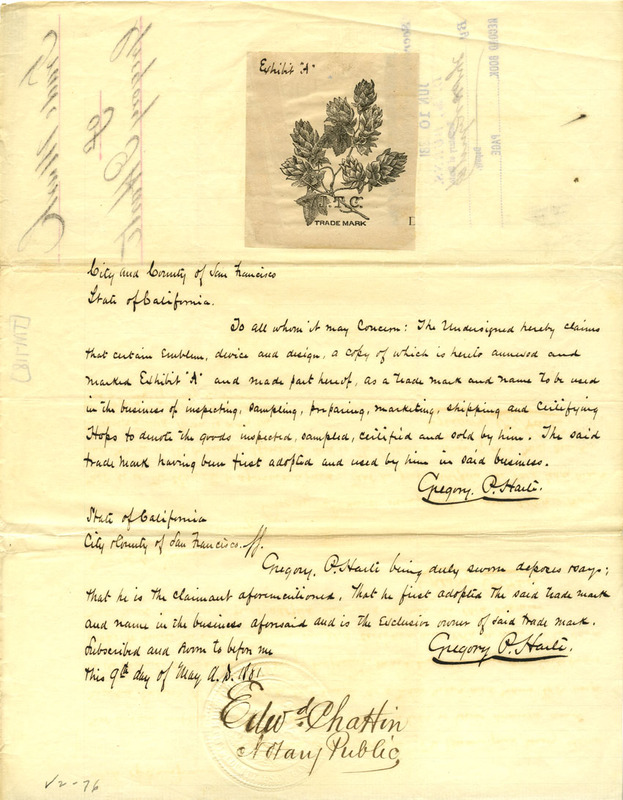 Exhibit "A"
T.T.C.
TRADE MARK
RECORD BOOK
PAGE
JUN 10
City and County of San Francisco
State of California.
To all whom it may Concern: The Undersigned hereby claims
that certain Emblem, device and design, a copy of which is hereto annexed and
marked Exhibit "A" and made part hereof, as a trade mark and name to be used
in the business of inspecting, sampling, preparing, marketing, shipping and Certifying
Hops to denote the goods inspected, sampled, certified and sold by him. The said
trade mark having been first adopted and used by him in said business.
Gregory. P. Harte.
State of California
City & County of San Francisco. ss.
Gregory. P. Harte being duly sworn deposes & says;
that he is the claimant aforementioned. That he first adopted the said trade mark
and name in the business aforesaid and is the Exclusive owner of said trade mark.
Subscribed and sworn to before me
this 9th day of May A.D. 1881
Gregory P. Harte.
Edwd. Chattin
Notary Public
V2-76